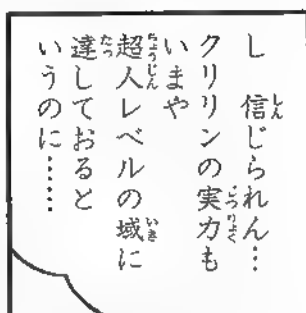 し　信じられん…
クリリンの実力も
いまや
超人レベルの域に
達しておると
いうのに……